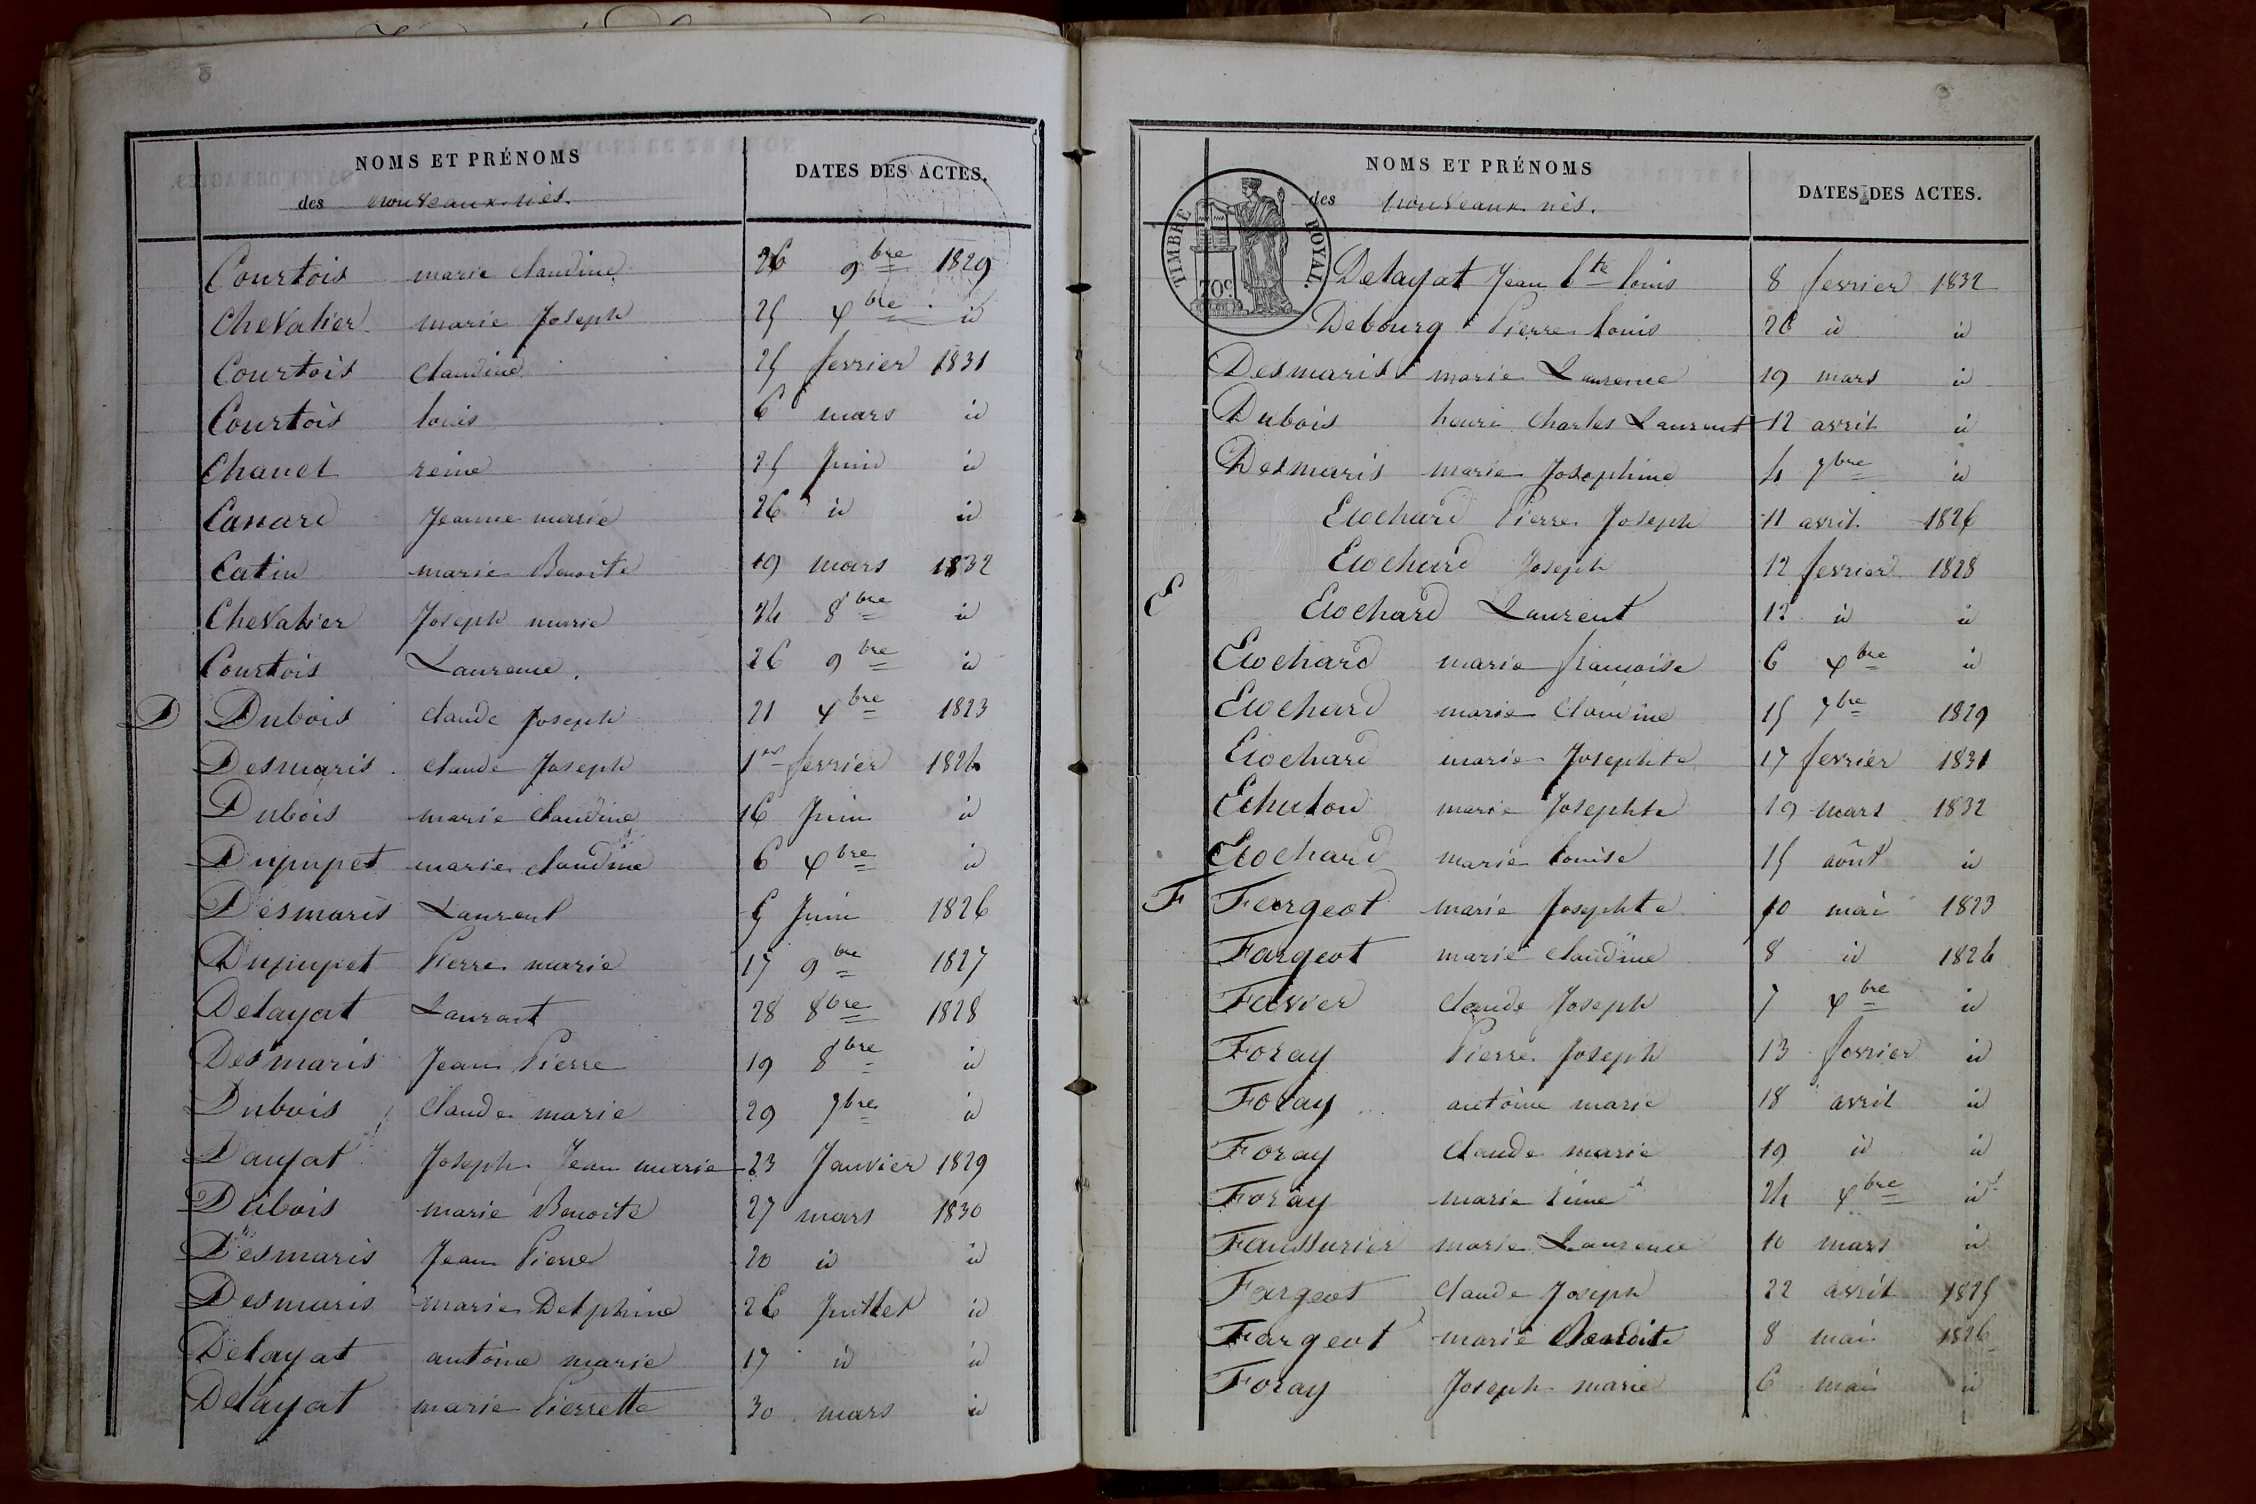 NOMS ET PRÉNOMS
des nouveaux nés.
DATES DES ACTES.
Courtois marie Claudine 26 9bre 1829
Chevalier marie Joseph 25 Xbre id
Courtois Claudine 25 fevrier 1831
Courtois louis 6 mars id
Chanel reine 25 Juin id
Canard Jeanne marie 26 id id
Catin marie Benoite 19 mars 1832
Chevalier Joseph marie 24 8bre id
Courtois Laurence. 26 9bre id
D Dubois Claude Joseph 21 Xbre 1823
Desmaris Claude Joseph 1er fevrier 1824
Dubois marie Claudine 16 Juin id
Dupupet marie Claudine 6 Xbre id
Desmaris Laurent 5 Juin 1826
Dupupet Pierre marie 17 9bre 1827
Delayat Laurent 28 8bre 1828
Desmaris Jean Pierre 19 8bre id
Dubois Claude marie 29 7bre id
Joseph Jean marie 23 Janvier 1829
Dubois marie Benoite 27 mars 1830
Desmaris Jean Pierre 20 id id
Desmaris marie Delphine 26 Juillet id
Delayat antoine marie 17 id id
Delayat marie Pierrette 30 mars id
NOMS ET PRÉNOMS
des nouveaux nés.
DATES DES ACTES.
TIMBRE ROYAL.
70c
Delayat Jean bte louis 8 fevrier 1832
Debourg Pierre louis 26 id id
Desmaris marie Laurence 19 mars id
Dubois henri Charles Laurent 12 avril id
Desmaris marie Josephine 4 7bre id
Evochard Pierre Joseph 11 avril 1826
Evochard Joseph 12 fevrier 1828
E Evochard Laurent 12 id id
Evochard marie françoise 6 Xbre id
Evochard marie Claudine 15 7bre 1829
Evochard marie Josephte 17 fevrier 1831
marie Josephte 19 mars 1832
Evochard marie louise 15 août id
F Fargeot marie Josephte 10 mai 1823
Fargeot marie Claudine 8 id 1824
Favier Claude Joseph 7 Xbre id
Foray Pierre Joseph 13 fevrier id
Foray antoine marie 18 avril id
Foray Claude marie 19 id id
Foray marie reine 24 Xbre id
Faussurier marie Laurence 10 mars id
Fargeot Claude Joseph 22 avril 1825
Fargeot marie Benoite 8 mai 1826
Foray Joseph marie 6 mai id